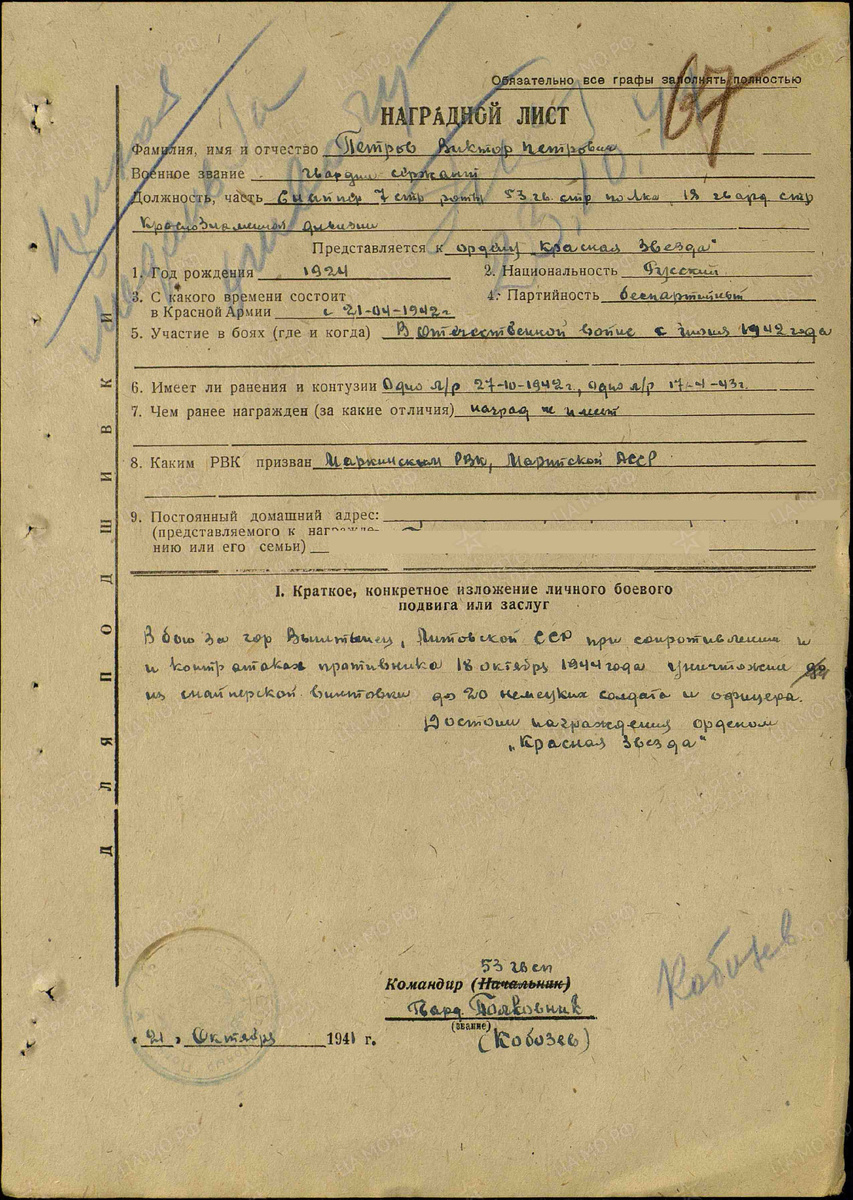 Обязательно все графы заполнять полностью
67
НАГРАДНОЙ ЛИСТ
Фамилия, имя и отчество Петров Виктор Петрович
Военное звание гвардии сержант
Должность, часть Снайпер 7 стр роты 53 гв. стр полка, 18 гвард стр
Краснознаменной дивизии
Представляется к ордену "Красная Звезда"
1. Год рождения 1924
2. Национальность Русский
3. С какого времени состоит
в Красной Армии с 21-04-1942г.
4. Партийность беспартейный
5. Участие в боях (где и когда) В Отечественной войне с июля 1942 года
6. Имеет ли ранения и контузии Одно л/р 27-10-1942г., одно л/р 17-4-43г.
7. Чем ранее награжден (за какие отличия) наград не имеет
8. Каким РВК призван РВК, Марийской АССР
9. Постоянный домашний адрес:
(представляемого к
нию или его семьи)
I. Краткое, конкретное изложение личного боевого
подвига или заслуг
В бою за гор Выштынец, Литовской ССР при сопротивлении и
и контр атаках противника 18 октября 1944 года уничтожил
из снайперской винтовки до 20 немецких солдата и офицера.
Достоин награждения орденом
„Красная Звезда"
ДЛЯ ПОДШИВКИ
53 гв сп
Командир (Начальник)
Гвард Полковник
(звание)
(Кобозев)
Кобозев
« 21 » Октября 1941 г.